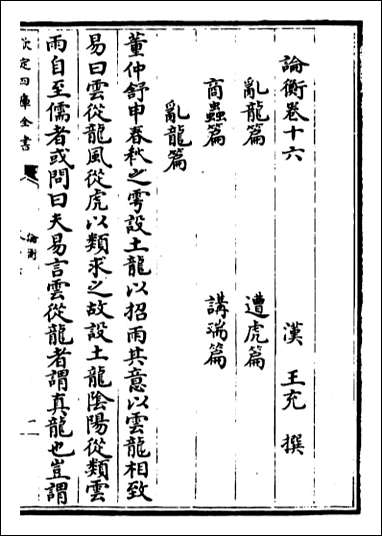 論衡卷十六
漢 王充 撰
亂龍篇 遭虎篇
商蟲篇 講瑞篇
亂龍篇
董仲舒申春秋之雩設土龍以招雨其意以雲龍相致
易曰雲從龍風從虎以類求之故設土龍陰陽從類雲
雨自至儒者或問曰夫易言雲從龍者謂真龍也豈謂
欽定四庫全書
論衡